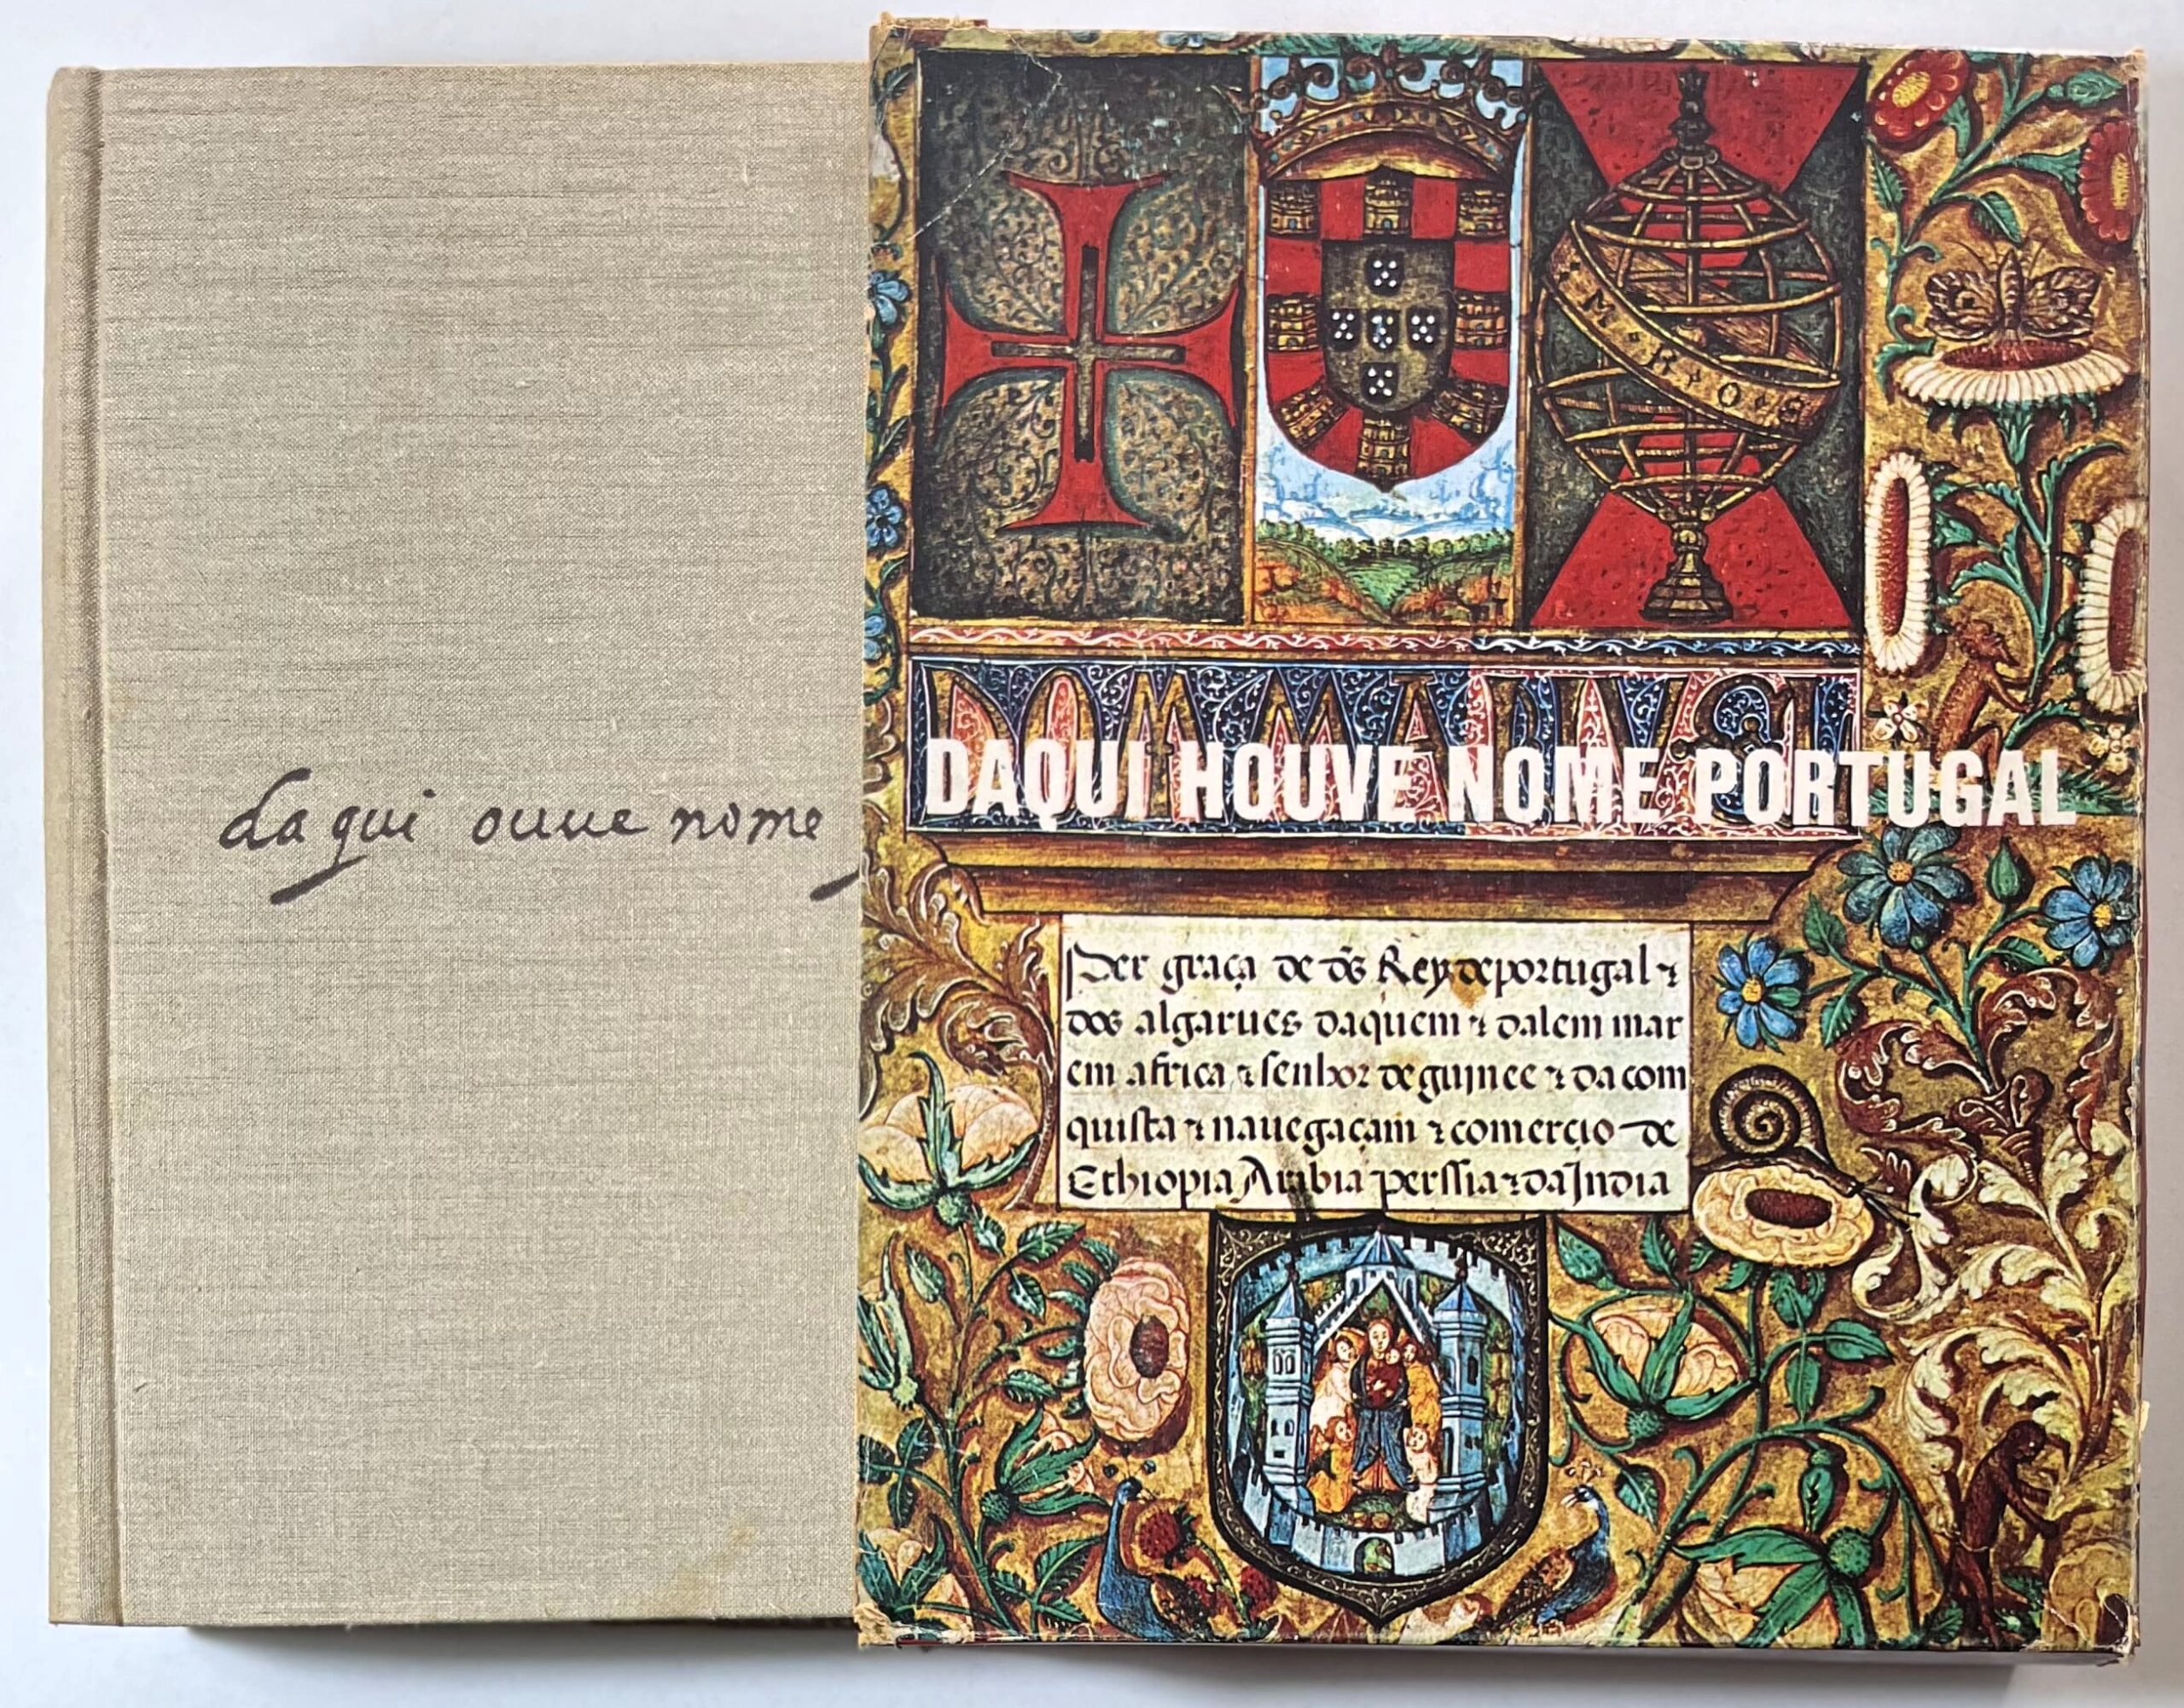 da qui ouue nome
DAQUI HOUVE NOME PORTUGAL
Per graça de dōs Rey de portugal ⁊
dos algarues daquem ⁊ dalem mar
em africa ⁊ senhor de guinee ⁊ da com
quista ⁊ nauegaçam ⁊ comerçio de
Ethiopia Arabia perssia ⁊ da India